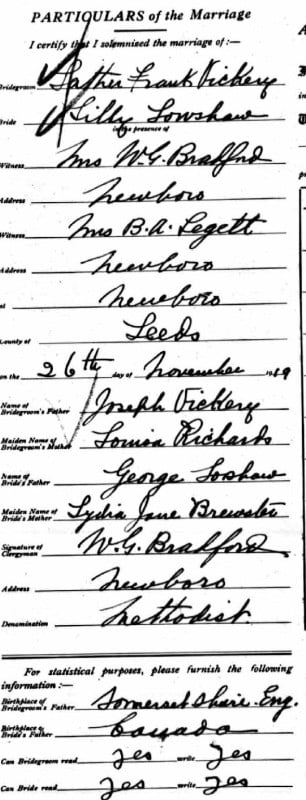 PARTICULARS of the Marriage
I certify that I solemnised the marriage of :—
Bridegroom Frank Vickery
Bride Lilly Lowshaw
in the presence of
Witness Mrs W.G. Bradford
Address Newboro
Witness Mrs B.A. Legett
Address Newboro
at Newboro
County of Leeds
on the 26th day of November 19
Name of Bridegroom's Father Joseph Vickery
Maiden Name of Bridegroom's Mother Louisa Richards
Name of Bride's Father George Loshaw
Maiden Name of Bride's Mother Lydia Jane Brewster
Signature of Clergyman W.G. Bradford
Address Newboro
Denomination Methodist
For statistical purposes, please furnish the following
information :—
Birthplace of Bridegroom's Father Somersetshire Eng.
Birthplace of Bride's Father Canada
Can Bridegroom read yes write yes
Can Bride read yes write yes